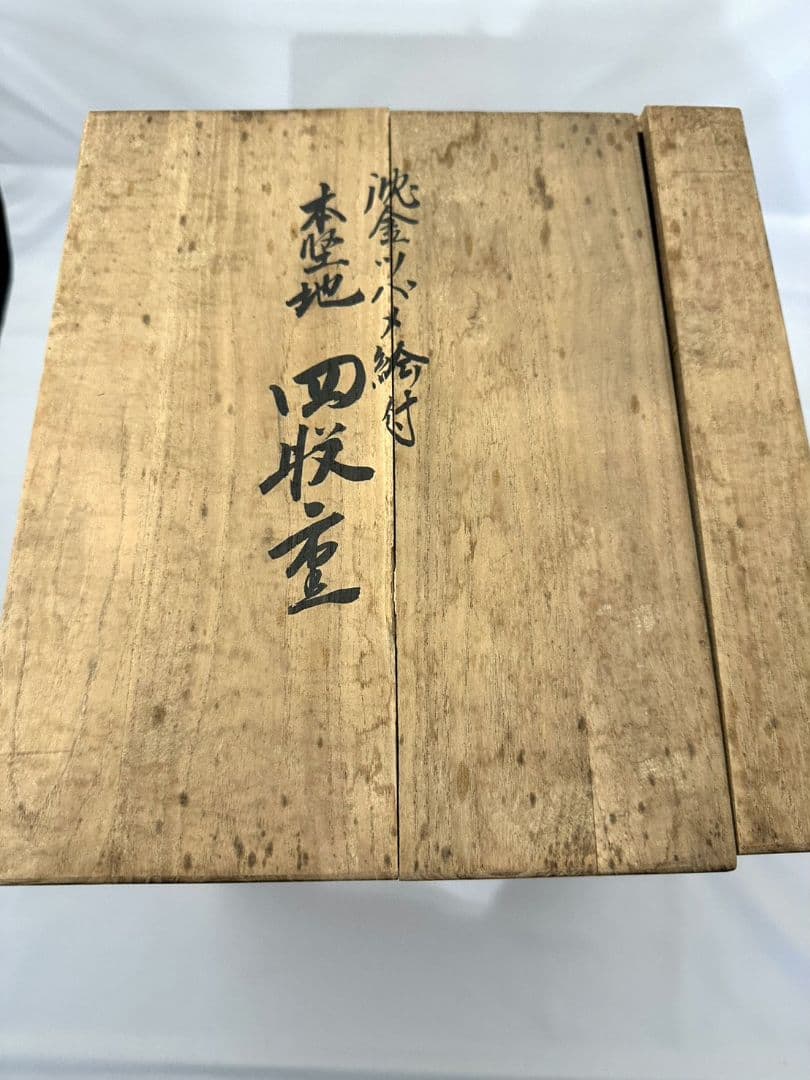 沈金ツバメ絵付
本堅地 四段重